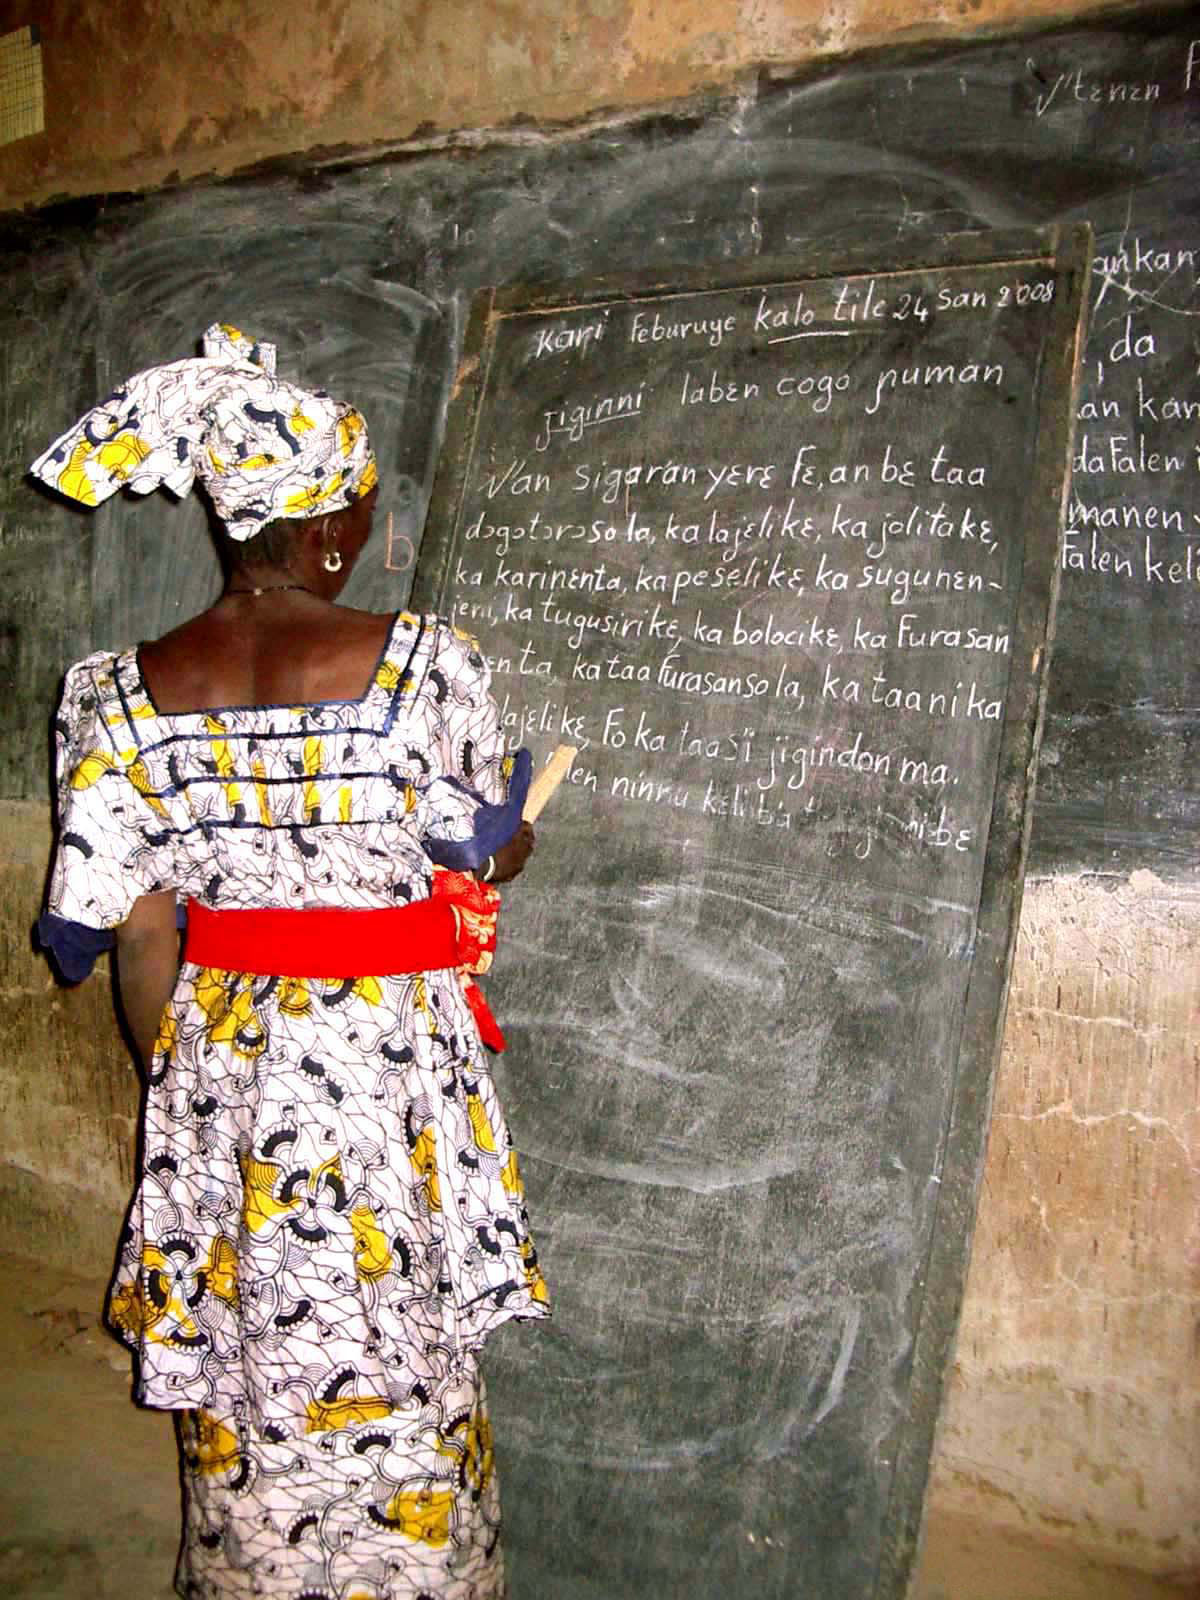 kari feburuye kalo tile 24 san 2008
jiginni labɛn cogo ɲuman
N'an sigaran yɛrɛ fɛ, an bɛ taa
dɔgɔtɔrɔso la, ka lajɛlikɛ, ka jolita kɛ,
ka karinɛnta, ka peselikɛ, ka sugunɛn-
jeni, ka tugusirikɛ, ka bolocikɛ, ka furasan
ɛnta, ka taa furasanso la, ka taa ni ka
lajɛlikɛ, fo ka taa sï jigindon ma.
den ninnu kɛli
bɛ
b
N'tɛnɛn
ankan
da
an kan
da falen
manen
falen keli